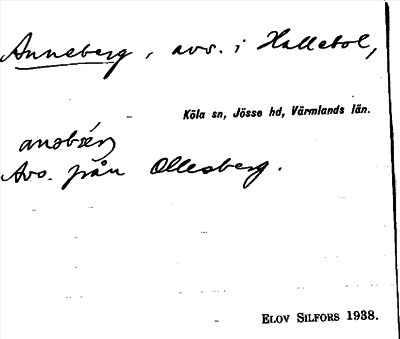 Anneberg, avs. i Hallebol,
Köla sn, Jösse hd, Värmlands län.
Avs. från Ollesberg.
ELOV SILFORS 1938.